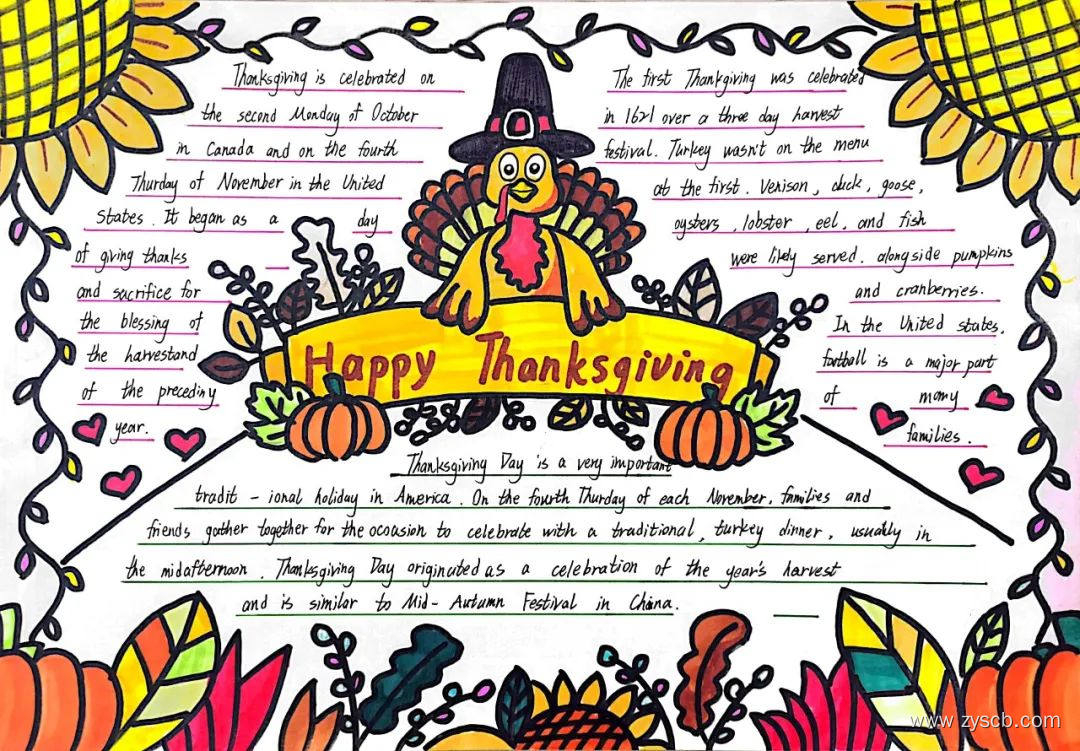 Thanksgiving is celebrated on
the second Monday of October
in Canada and on the fourth
Thurday of November in the United
States. It began as a day
of giving thanks
and sacrifice for
the blessing of
the harvestand
of the precediny
year.
The first Thankgiving was celebrated
in 1621 over a three day harvest
festival. Turkey wasn't on the menu
at the first. Venison, duck, goose,
oysters, lobster, eel, and fish
were likly served. alongside pumpkins
and cranberries.
In the United states,
football is a major part
of many
families.
Happy Thanksgiving
Thanksgiving Day is a very important
tradit - ional holiday in America. On the fourth Thurday of each November, families and
friends gather together for the occasion to celebrate with a traditional, turkey dinner, usually in
the midafternoon. Thanksgiving Day originated as a celebration of the year's harvest
and is similar to Mid- Autumn Festival in China.
www.zyscb.com